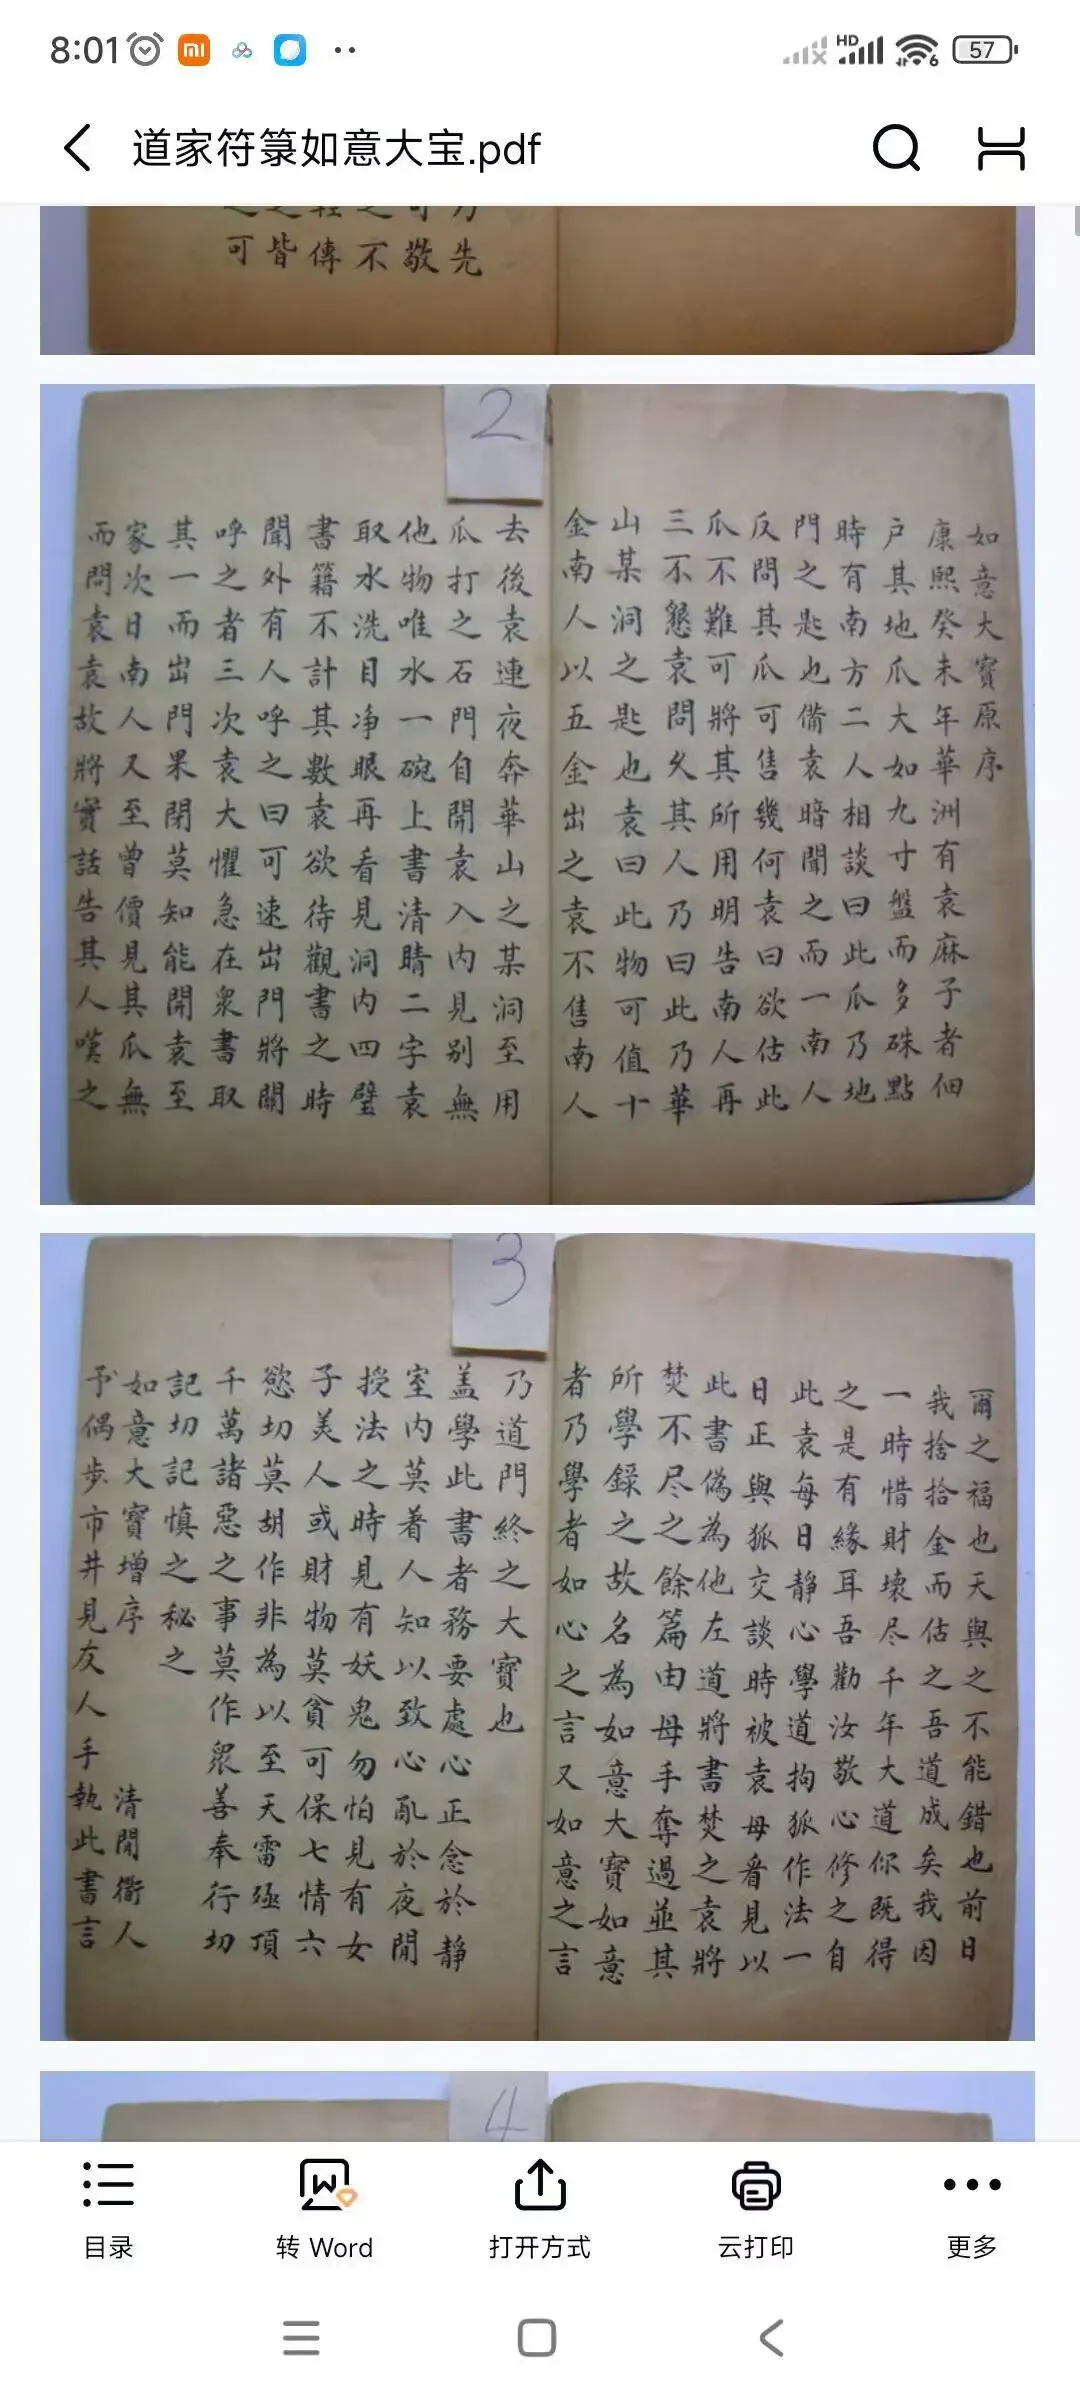 8:01
HD
6
57
道家符箓如意大宝.pdf
先
敬
不
傳
皆
可
2
如意大寶原序
康熙癸未年華洲有袁麻子者佃
户其地爪大如九寸盤而多硃點
時有南方二人相談曰此爪乃地
門之匙也俻袁暗聞之而一南人
反問其爪可售幾何袁曰欲估此
爪不難可將其所用明告南人再
三不懇袁問久其人乃曰此乃華
山某洞之匙也袁曰此物可值十
金南人以五金出之袁不售南人
去後袁連夜奔華山之某洞至用
瓜打之石門自開袁入内見别無
他物唯水一碗上書清睛二字袁
取水洗目净眼再看見洞内四壁
書籍不計其數袁欲待觀書之時
聞外有人呼之曰可速出門將關
呼之者三次袁大懼急在衆書取
其一而出門果閉莫知能開袁至
家次日南人又至曾價見其瓜無
而問袁袁故將實話告其人嘆之
3
爾之福也天與之不能錯也前日
我捨拾金而估之吾道成矣我因
一時惜財壞尽千年大道你既得
之是有緣耳吾勸汝敬心修之自
此袁每日静心學道拘狐作法一
日正與狐交談時被袁母看見以
此書偽為他左道將書焚之袁將
焚不尽之餘篇由母手奪過並其
所學錄之故名為如意大寶如意
者乃學者如心之言又如意之言
乃道門終之大寶也
盖學此書者務要處心正念於静
室内莫着人知以致心亂於夜閒
授法之時見有妖鬼勿怕見有女
子美人或財物莫貪可保七情六
慾切莫胡作非為以至天雷殛頂
千萬諸惡之事莫作衆善奉行切
記切記慎之秘之
如意大寶增序
清閒衜人
予偶步市井見友人手執此書言
4
目录
转 Word
打开方式
云打印
更多